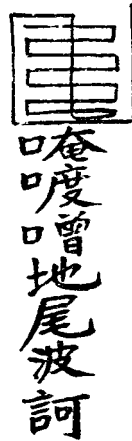 唵度噌地尾波訶